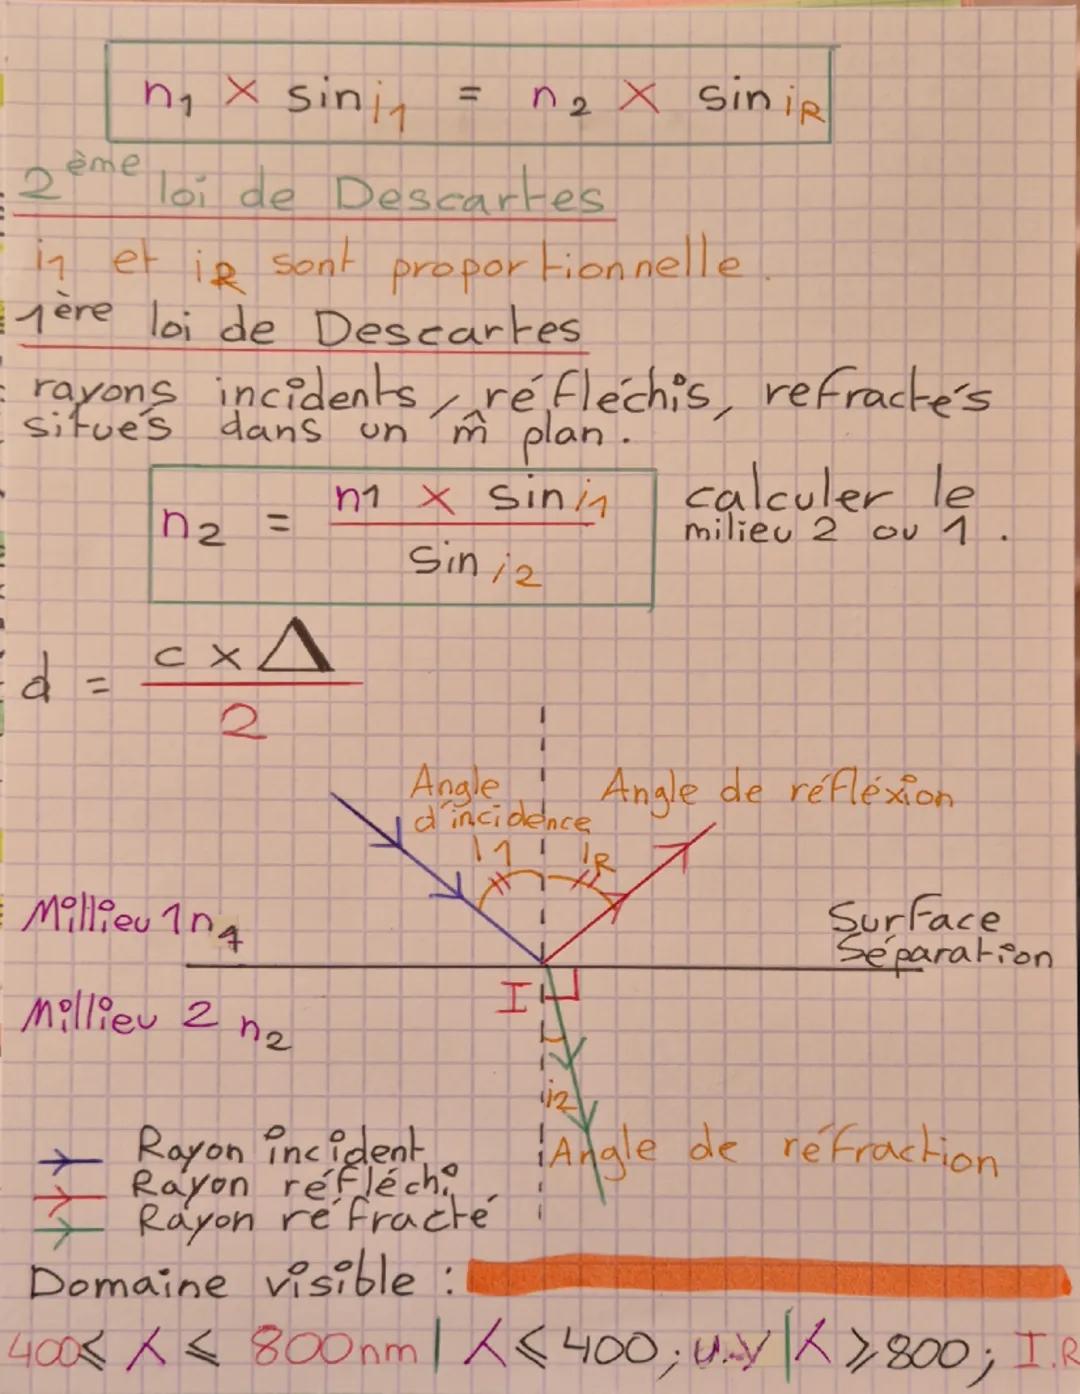 n₁ × sin i₁ = n₂ × sin iR
2ème loi de Descartes
i₁ et iR sont proportionnelle.
1ère loi de Descartes
rayons incidents, réfléchis, refractés
situés dans un m̂ plan.
n₂ = n1 × sin i₁ / sin i₂
calculer le
milieu 2 ou 1.
d = c × Δ / 2
Angle
d'incidence
Angle de réfléxion
i1 iR
Millieu 1 n₁
Surface
Séparation
I
Millieu 2 n₂
i₂
Angle de réfraction
Rayon incident
Rayon réfléchi
Rayon réfracté
Domaine visible :
400≤ λ ≤ 800nm | λ ≤ 400; u.v | λ ≥ 800; I.R